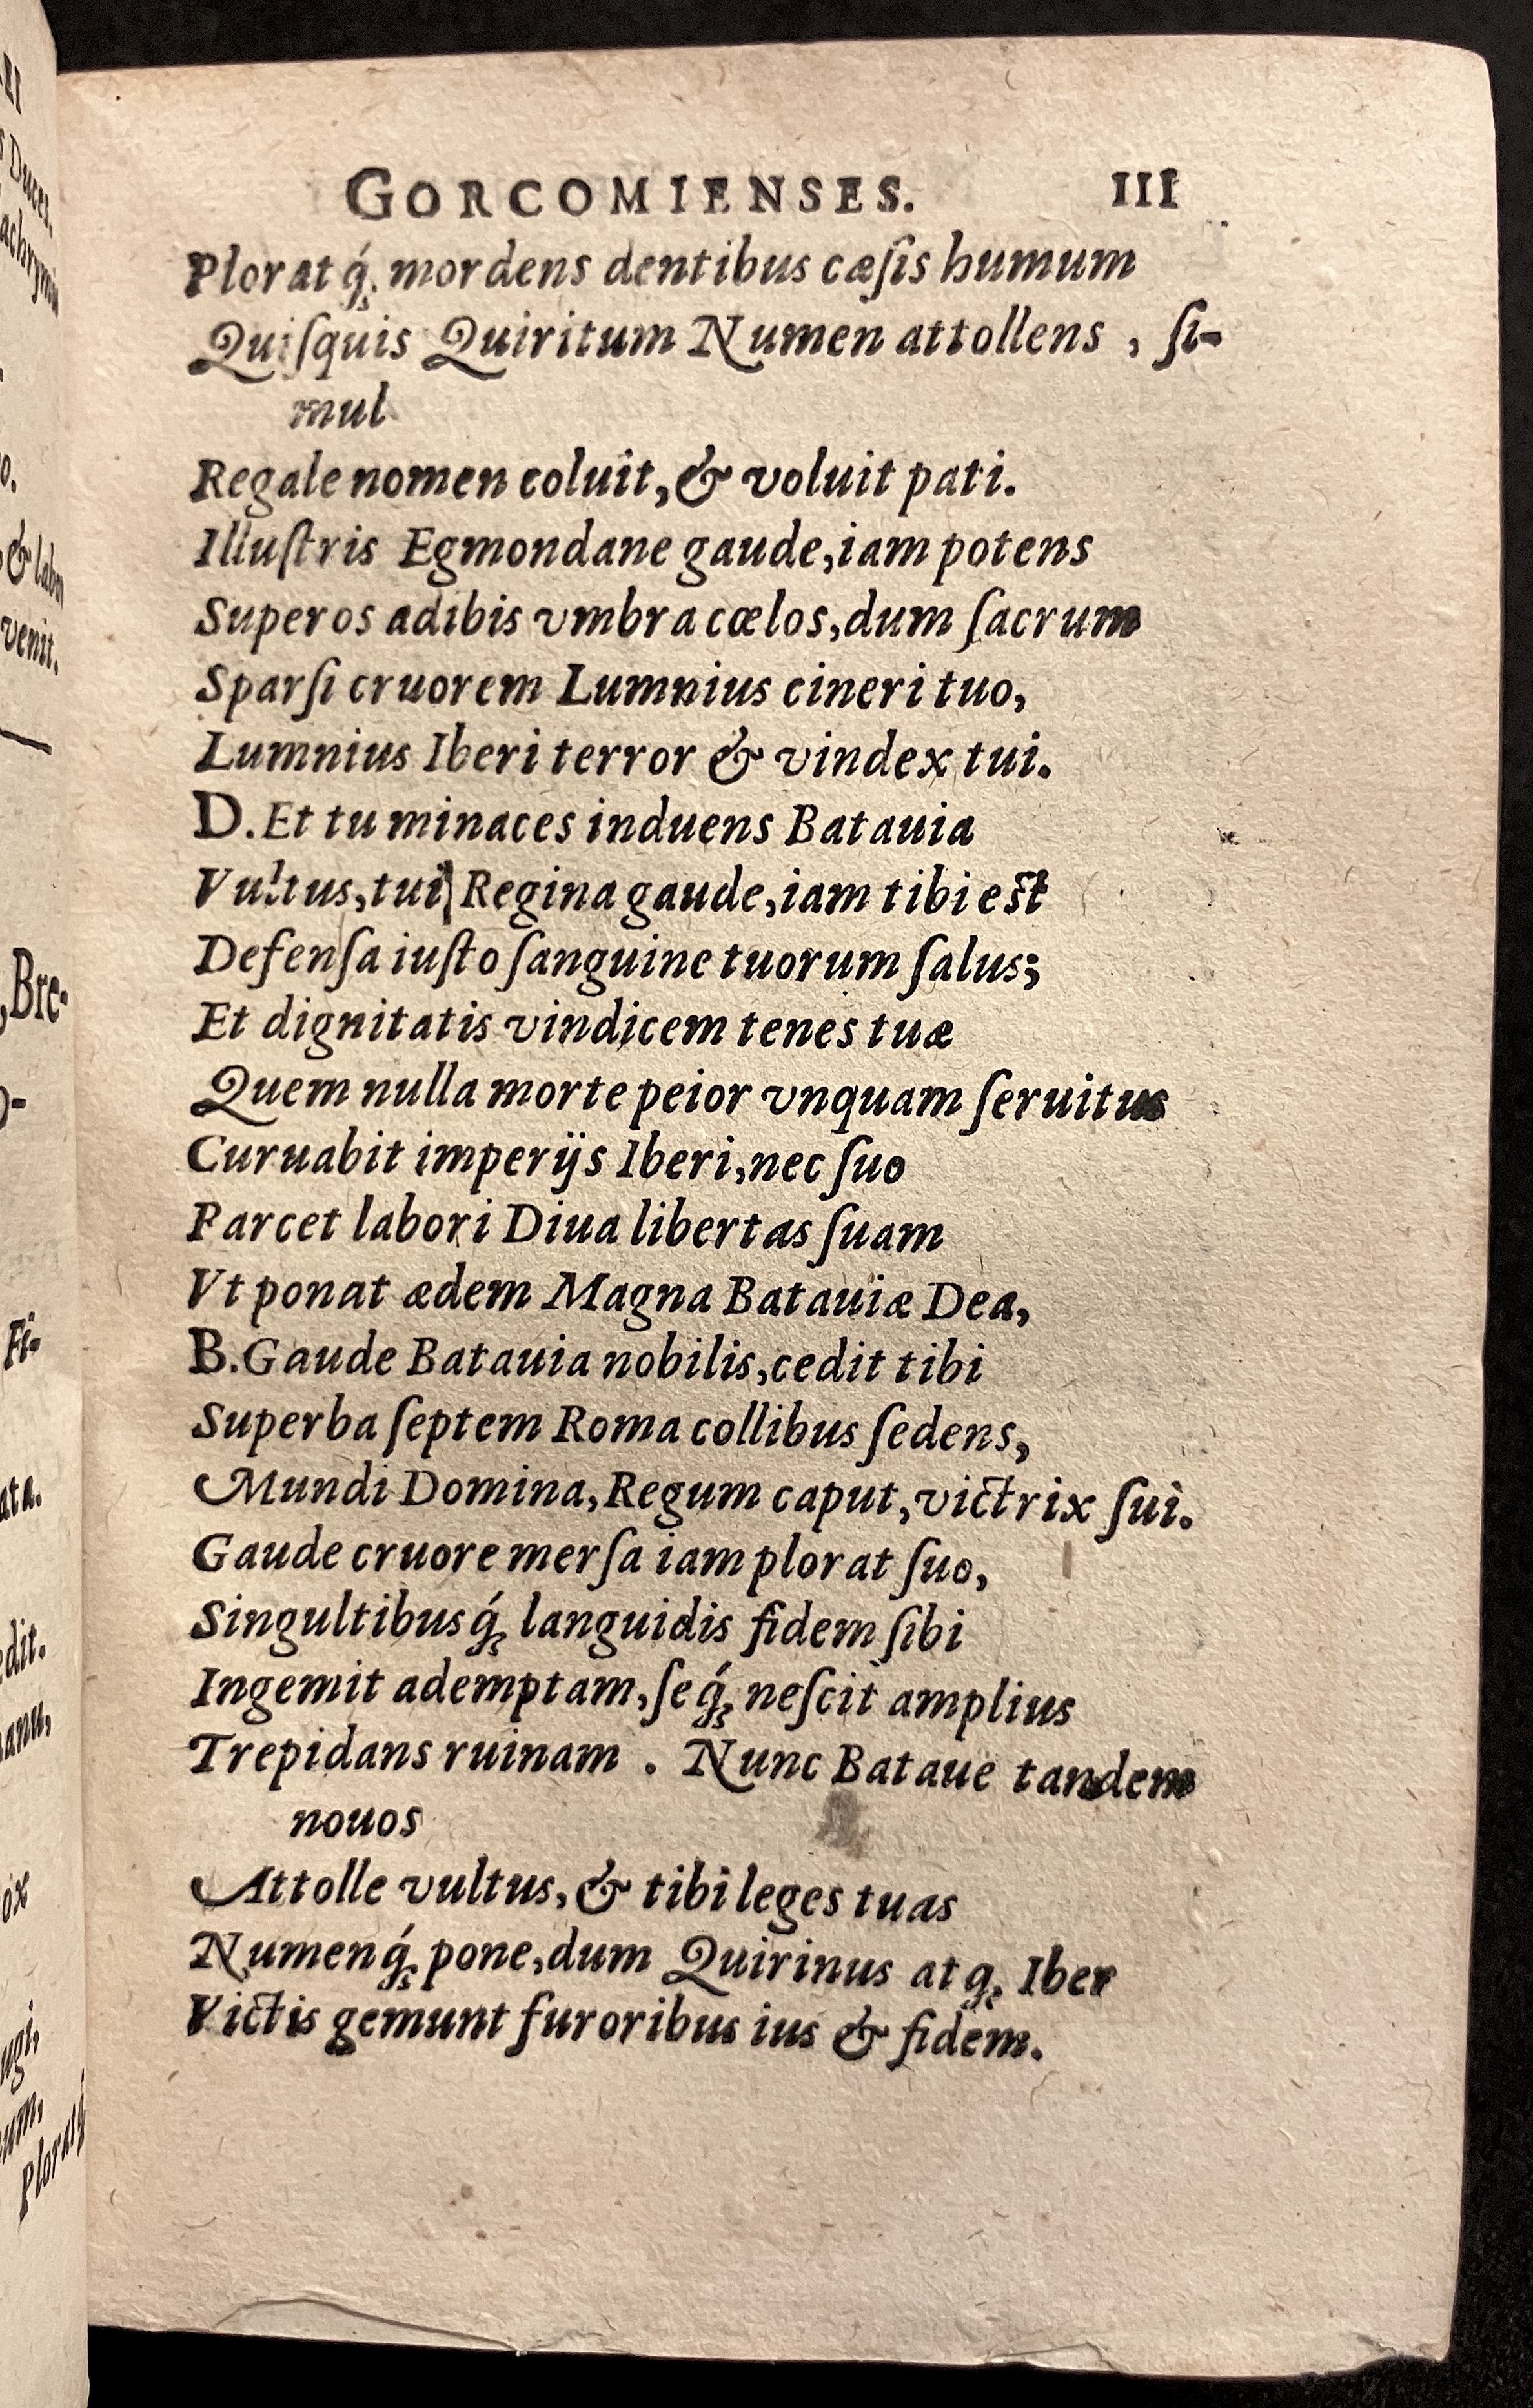 GORCOMIENSES. III
Ploratq́; mordens dentibus cæſis humum
Quiſquis Quiritum Numen attollens, ſi-
mul
Regale nomen coluit, & voluit pati.
Illuſtris Egmondane gaude, iam potens
Superos adibis vmbra cœlos, dum ſacrum
Sparſi cruorem Lumnius cineri tuo,
Lumnius Iberi terror & vindex tui.
D. Et tu minaces induens Batauia
Vultus, tui Regina gaude, iam tibi est
Defenſa iuſto ſanguine tuorum ſalus;
Et dignitatis vindicem tenes tuæ
Quem nulla morte peior vnquam ſeruitus
Curuabit imperijs Iberi, nec ſuo
Parcet labori Diua libertas ſuam
Vt ponat ædem Magna Batauiæ Dea,
B. Gaude Batauia nobilis, cedit tibi
Superba ſeptem Roma collibus ſedens,
Mundi Domina, Regum caput, victrix ſui.
Gaude cruore merſa iam plorat ſuo,
Singultibusq́; languidis fidem ſibi
Ingemit ademptam, ſeq́; neſcit amplius
Trepidans ruinam. Nunc Bataue tandem
nouos
Attolle vultus, & tibi leges tuas
Numenq́; pone, dum Quirinus atq; Iber
Victis gemunt furoribus ius & fidem.
Bre-
Fi-
ata.
edit.
venit.
& labor
Duces.
Ploratq́